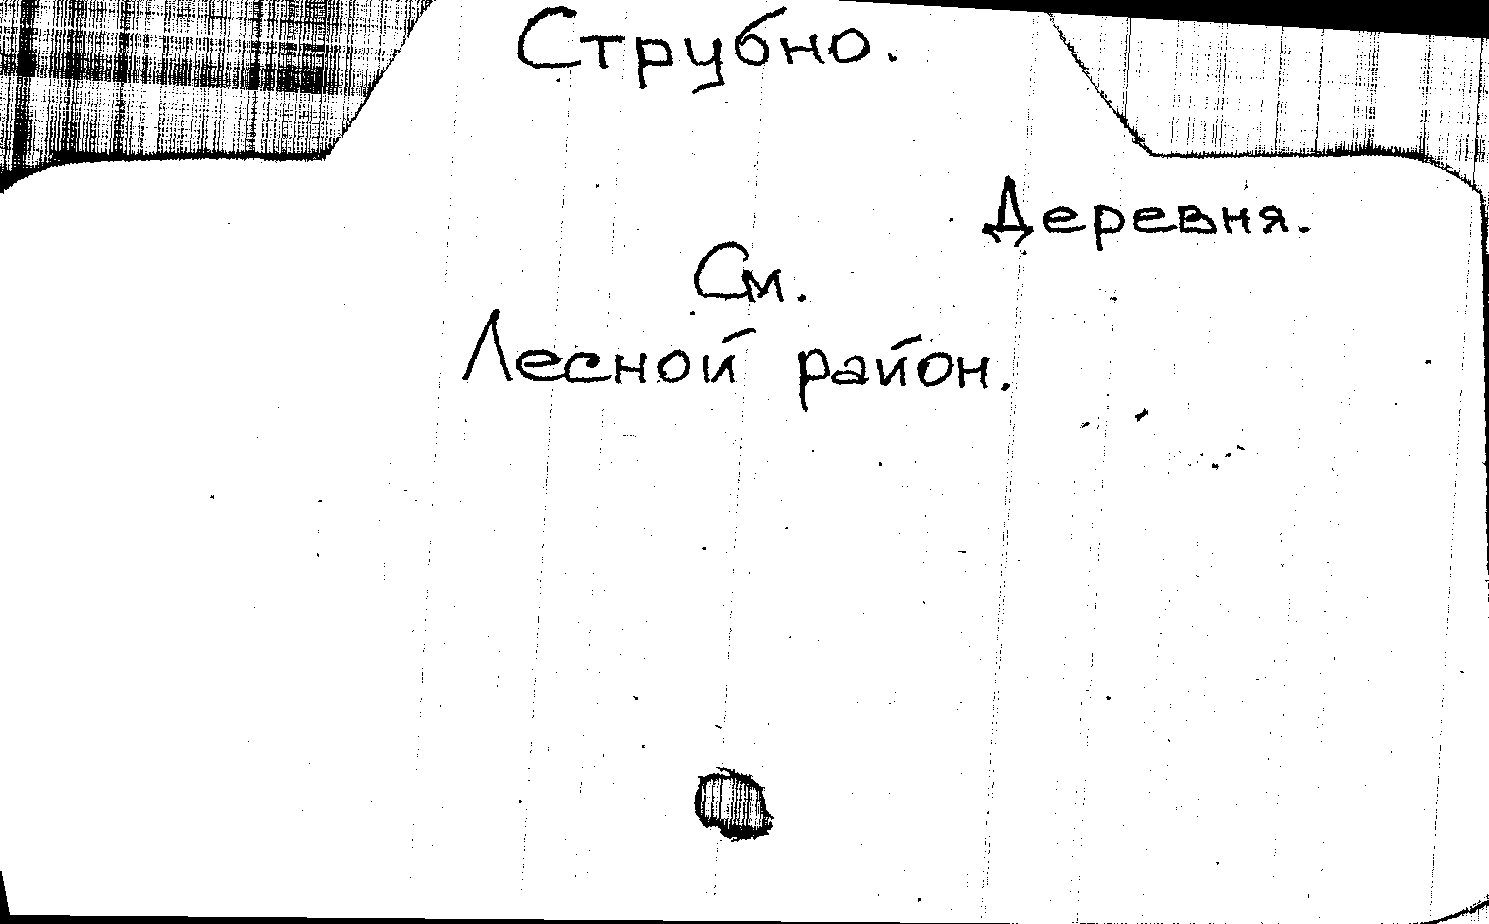 Струбно.
Деревня.
См.
Лесной район.